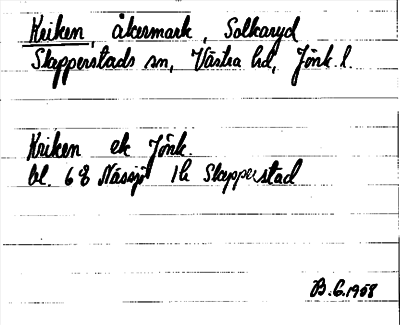 Kriken, åkermark, Solkaryd
Skepperstads sn, Västra hd, Jönk. l.
Kriken ek Jönk.
bl. 68 Nässjö 1h Skepperstad
B. G. 1958